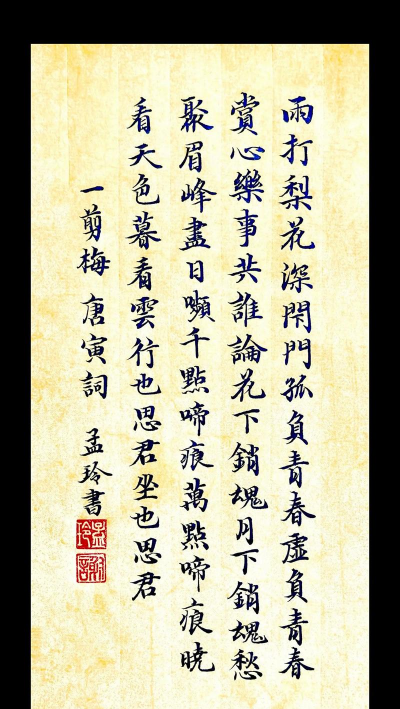 雨打梨花深閇門孤負青春虛負青春
賞心樂事共誰論花下銷魂月下銷魂愁
聚眉峰盡日嚬千點啼痕萬點啼痕曉
看天色暮看雲行也思君坐也思君
一剪梅 唐寅詞 孟玲書